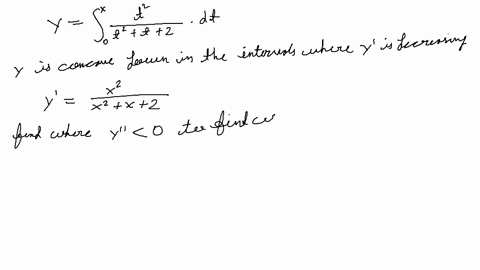 y = ∫₀ˣ t²/(t² + t + 2) . dt
y is concave down in the intervals where y' is decreasing
y' = x²/(x² + x + 2)
find where y'' < 0 to find